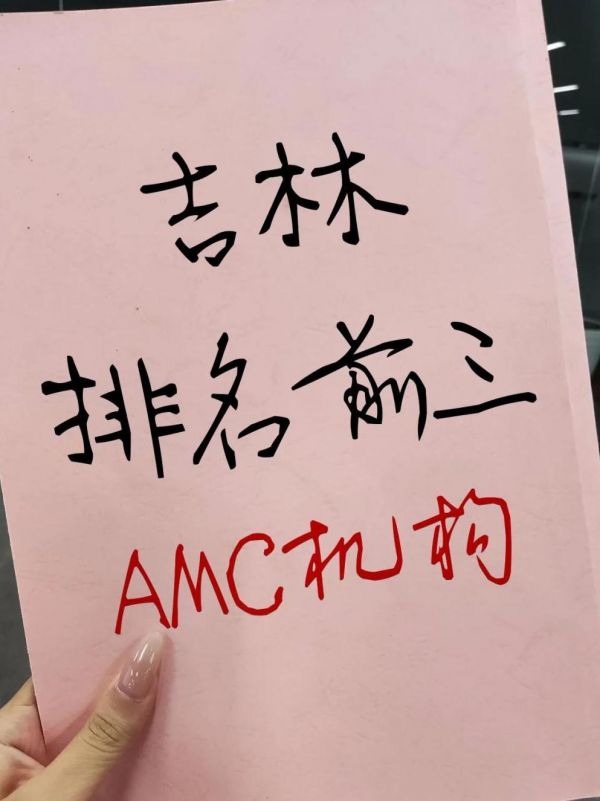 吉林
排名前三
AMC机构